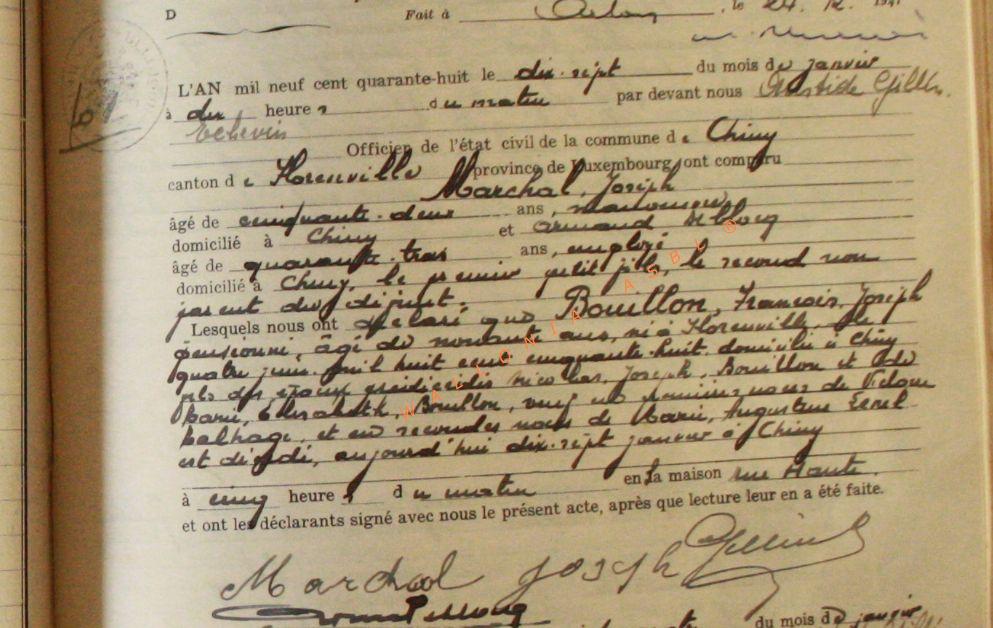 D Fait à Arlon, le 24. 12. 194
L'AN mil neuf cent quarante-huit le dix-sept du mois de janvier
à dix heures du matin par devant nous Aristide Gillet.
Echevin
Officier de l'état civil de la commune de Chiny
canton de Florenville province de Luxembourg ont comparu
Marchal, Joseph
âgé de cinquante-deux ans, manoeuvre
domicilié à Chiny et Armand
âgé de quarante-trois ans, employé
domicilié à Chiny, le premier petit fils, le second non
parent du défunt.
Lesquels nous ont déclaré que Bouillon, François, Joseph
pensionné, âgé de nonante ans, né à Florenville, le
quatre juin mil huit cent cinquante-huit, domicilié à Chiny
fils des époux prédécédés Nicolas, Joseph, Bouillon et de
Marie, Elisabeth, Bouillon, veuf en premières noces de
et en secondes noces de Marie, Augustine
est décédé, aujourd'hui dix-sept janvier à Chiny
à cinq heures du matin en la maison rue Haute.
et ont les déclarants signé avec nous le présent acte, après que lecture leur en a été faite.
Marchal Joseph
du mois de janvier
WALLONIA ASBL ©